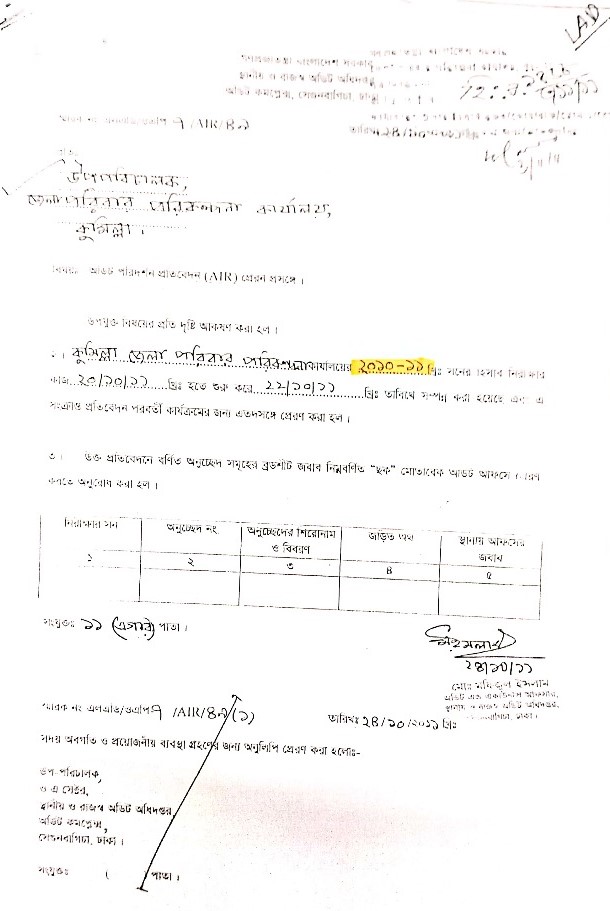 LAD
স্থানীয় ও রাজস্ব অডিট অধিদপ্তর
অডিট কমপ্লেক্স, সেগুনবাগিচা, ঢাকা।
৭ /AIR/৪৯
উপপরিচালক,
জেলা পরিবার পরিকল্পনা কার্যালয়,
কুমিল্লা।
বিষয়ঃ অডিট পরিদর্শন প্রতিবেদন (AIR) প্রেরণ প্রসঙ্গে।
উপযুক্ত বিষয়ের প্রতি দৃষ্টি আকর্ষণ করা হল।
কুমিল্লা জেলা পরিবার পরিকল্পনা কার্যালয়ের ২০১০-১১ খ্রিঃ সনের হিসাব নিরীক্ষার
কাজ ২০/১০/১১ খ্রিঃ হতে শুরু করে ২২/১০/১১ খ্রিঃ তারিখে সম্পন্ন করা হয়েছে এবং এ
সংক্রান্ত প্রতিবেদন পরবর্তী কার্যক্রমের জন্য এতদসঙ্গে প্রেরণ করা হল।
৩। উক্ত প্রতিবেদনে বর্ণিত অনুচ্ছেদ সমূহের ব্রডশীট জবাব নিম্নবর্ণিত “ছক” মোতাবেক অডিট অফিসে প্রেরণ
করতে অনুরোধ করা হল।
নিরীক্ষার সন অনুচ্ছেদ নং অনুচ্ছেদের শিরোনাম ও বিবরণ জড়িত অর্থ স্থানীয় অফিসের জবাব
১ ২ ৩ ৪ ৫
সংযুক্তঃ ১১ (এগার) পাতা।
২৪/১০/১১
মোঃ মফিজুল ইসলাম
অডিট এন্ড একাউন্টস অফিসার,
স্থানীয় ও রাজস্ব অডিট অধিদপ্তর,
সেগুনবাগিচা, ঢাকা।
স্মারক নং এলএডি/ওএপি ৭ /AIR/৪৯(১) তারিখঃ ২৪/১০/২০১১ খ্রিঃ
সদয় অবগতি ও প্রয়োজনীয় ব্যবস্থা গ্রহণের জন্য অনুলিপি প্রেরণ করা হলোঃ-
উপ-পরিচালক,
ও এ সেক্টর,
স্থানীয় ও রাজস্ব অডিট অধিদপ্তর,
অডিট কমপ্লেক্স,
সেগুনবাগিচা, ঢাকা।
সংযুক্তঃ ( পাতা।